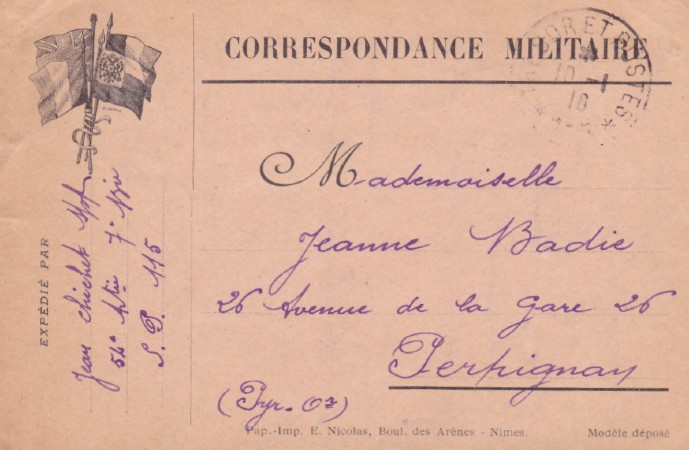 CORRESPONDANCE MILITAIRE
TRÉSOR ET POSTES
10 - 1
16
Mademoiselle
Jeanne Badie
26 Avenue de la Gare 26
Perpignan
(Pyr-Or)
EXPÉDIÉ PAR
Jean Chichet
54e Artie 7e
S. P. 115
Pap.-Imp. E. Nicolas, Boul. des Arènes - Nimes.
Modèle déposé